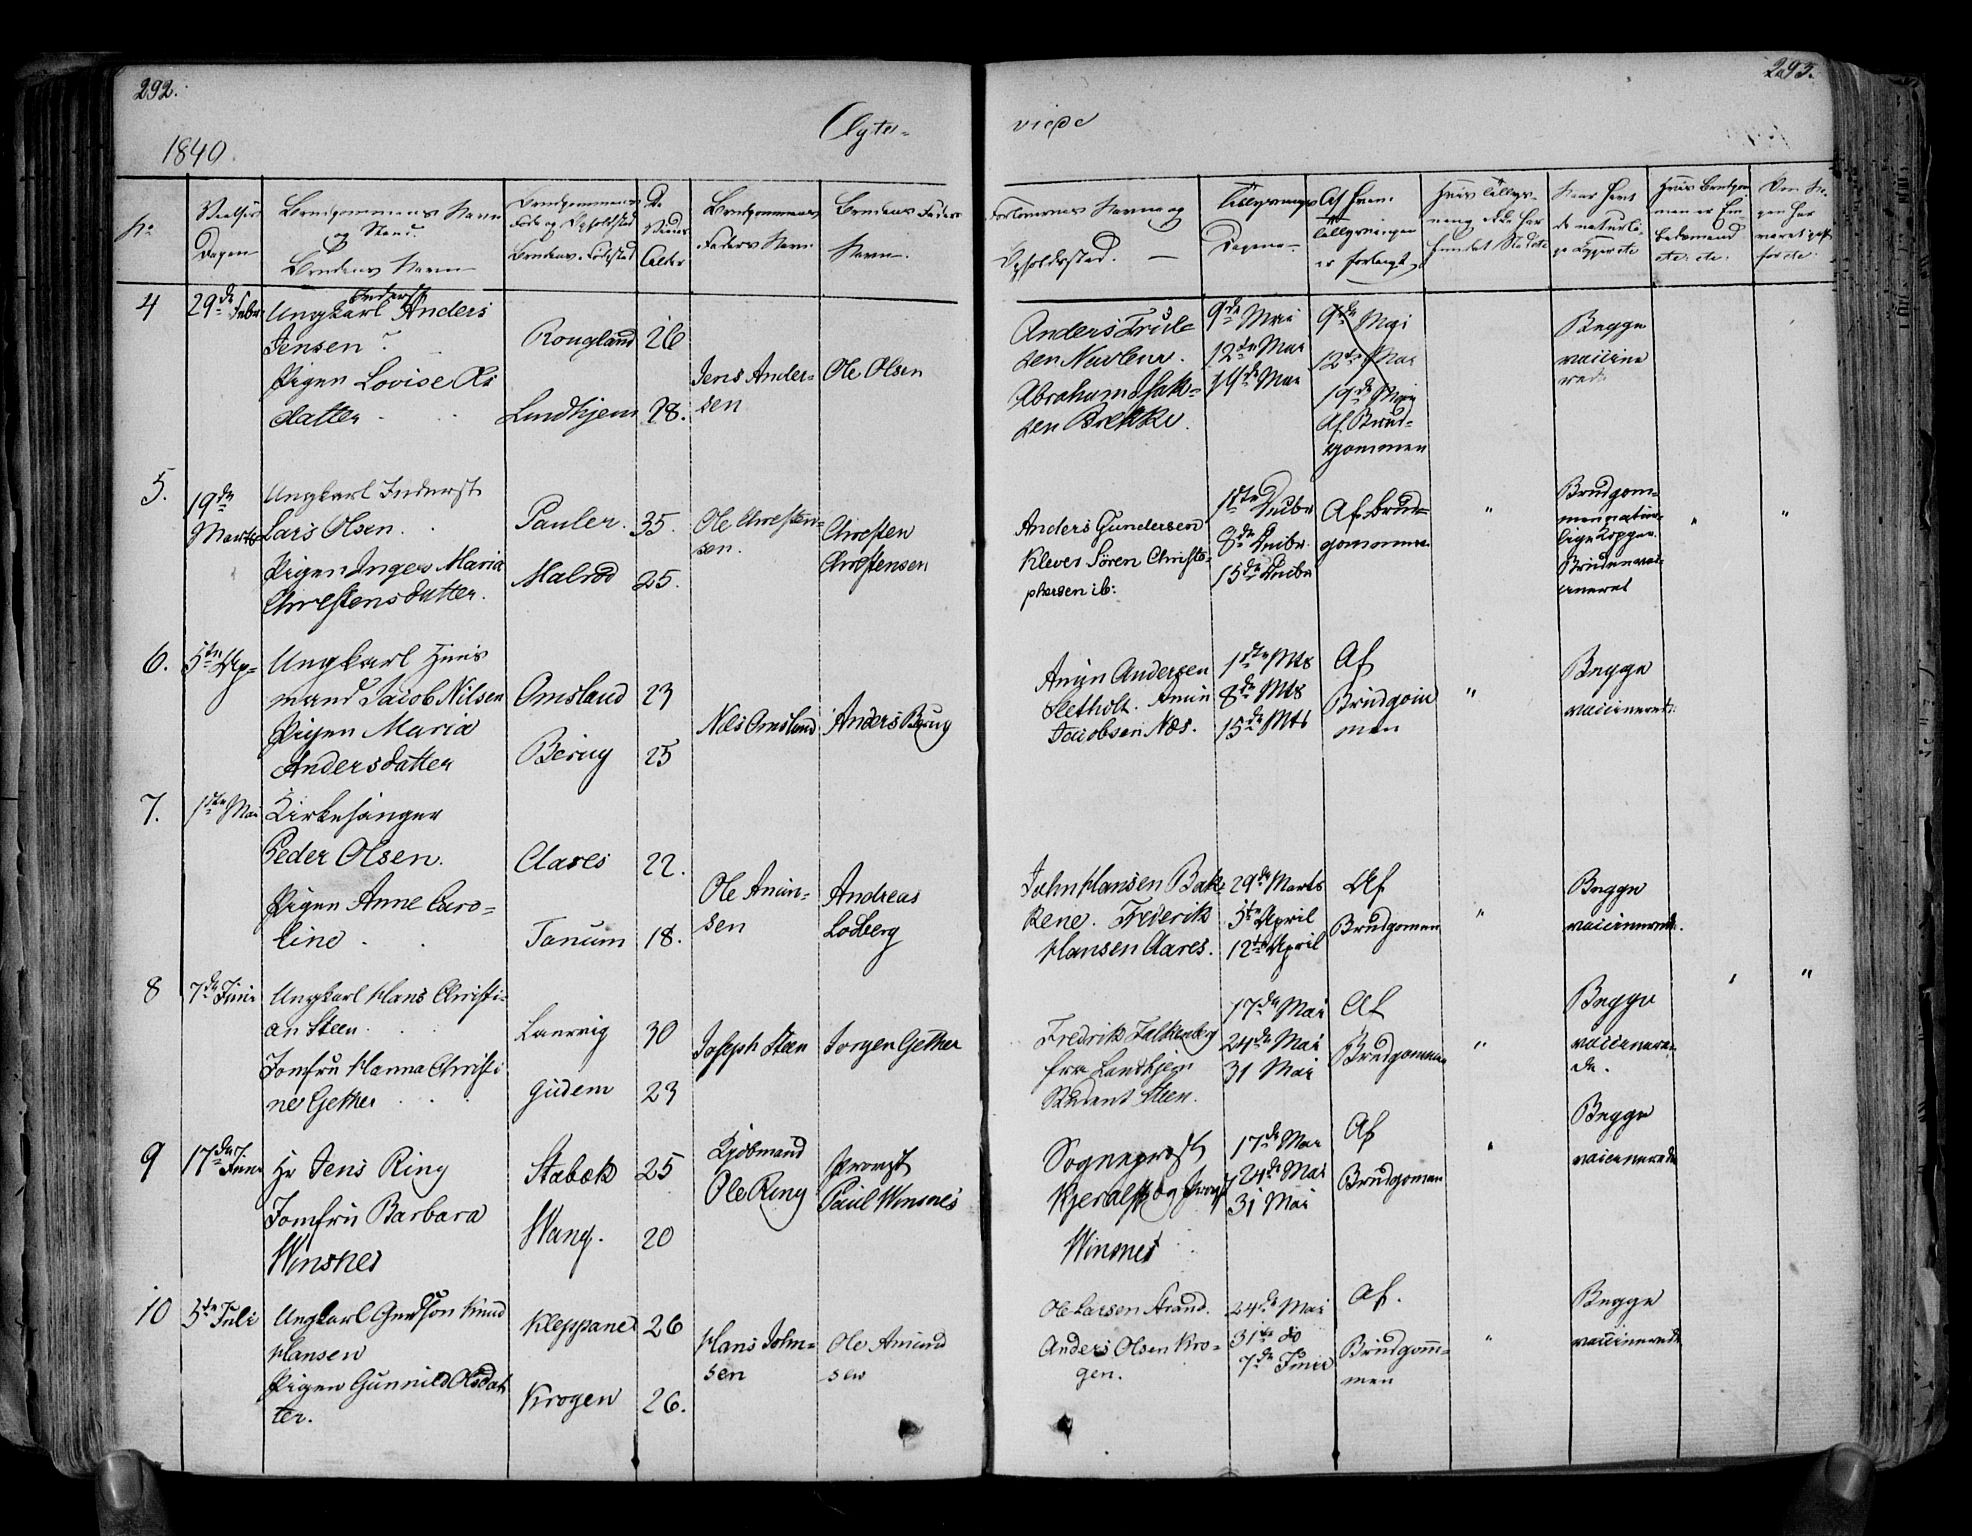 292.
293.
Ægte-
viede
1840
No
Vielses
Dagen
Brudgommens Navn
og Stand.
Brudens Navn
Brudgommens
Føde og Opholdsted
Brudens Fødested
De
Viedes
Alder
Brudgommens
Faders Navn
Brudens Faders
Navn.
Forlovernes Navne og
Opholdssted.
Tillysnings
Dagene
Af hvem
tillysningen
er forlangt
Hvis tillys-
ning ikke har
fundet Sted etc
4
29de Febr
Inderst
Ungkarl Anders
Jensen
Pigen Lovise Ols
datter
Rougland
26
Lundhjem
28.
Jens Ander-
sen
Ole Olsen
Anders Truls
sen
Abraham Isak-
sen Brekke.
9de Mai
12te Mai
19de Mai
9de Mai
12te Mai
19de Mai
Af Brud-
gommen
Begge
vaccine
rede
5.
19de
Marts
Ungkarl Inderst
Lars Olsen.
Pigen Inger Maria
Chrestensdatter.
Pauler.
35.
Malrød
25.
Ole Chresten-
sen.
Chresten
Chrestensen
Anders Gundersen
Klever Søren Christo-
phersen ib:
1ste Decbr
8de Decbr
15de Decbr
Af Brud-
gommen
"
Brudgom-
men natur-
lige Kopper.
Bruden vac-
cineret
"
"
6.
5te Ap-
Ungkarl Huus
mand Jacob Nilsen
Pigen Maria
Andersdatter
Omsland
23
Berug
25
Nils Omsland
Anders Berug
Andersen
Sletholt.
Jacobsen Næs.
1ste Mts
8de Mts
15de Mts
Af
Brudgom
men
"
Begge
vaccinerede.
7.
1ste Mai
Kirkesanger
Peder Olsen.
Pigen Anne Caro-
line
Aares
22.
Tanum
18.
Ole Amun-
sen
Andreas
Lodberg
John Hansen Bak-
kene. Frederik
Hansen Aares.
29de Marts
5te April
12te April
Af
Brudgomen
"
Begge
vaccinerede.
8
7de Juni
Ungkarl Hans Christi-
an Steen.
Jomfru Hanna Christi
ne Gether
Laurvig
30
Gudem
23
Joseph Steen
Jørgen Gether
Fredrik Falkenberg
fra Landhjem
Student Steen.
17de Mai
24de Mai
31 Mai
Af
Brudgommen
"
Begge
vaccinere-
de.
"
9
17de Juni
Hr Jens Ring
Jomfru Barbara
Winsnes
Stabæk
25
Wang.
20
Kjøbmand
Ole Ring
Provst
Paul Winsnes
Sogneprest
Kjerulf og Provst
Winsnes
17de Mai
24de Mai
31 Mai
Af
Brudgomen
"
Begge
vaccinerede
10
5te Juli
Ungkarl Knud
Hansen
Pigen Gunnild Olsdat
ter.
Kleppane
26
Krogen
26.
Hans John-
sen
Ole Amund
sen
Ole Larsen Strand.
Anders Olsen Kro-
gen.
24de Mai
31te do
7de Juni
Af.
Brudgom-
men
"
Begge
vaccinerede